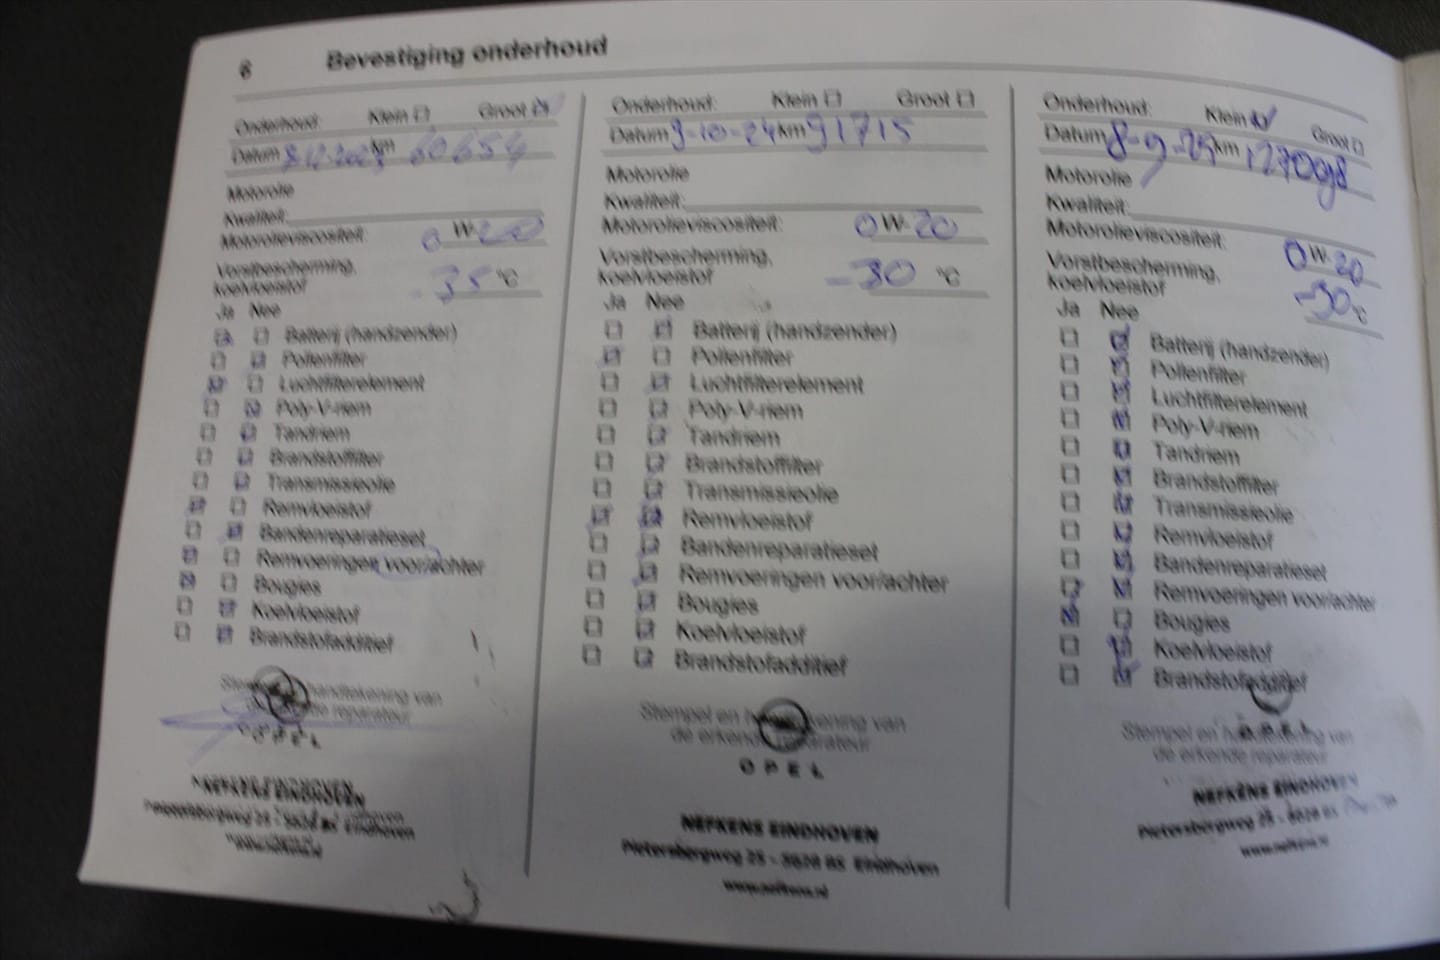 6 Bevestiging onderhoud
Onderhoud: Klein Groot
Datum 8-12-2023 km 60654
Motorolie
Kwaliteit:
Motorolieviscositeit: 0 W- 20
Vorstbescherming,
koelvloeistof -35 °C
Ja Nee
Batterij (handzender)
Pollenfilter
Luchtfilterelement
Poly-V-riem
Tandriem
Brandstoffilter
Transmissieolie
Remvloeistof
Bandenreparatieset
Remvoeringen voor/achter
Bougies
Koelvloeistof
Brandstofadditief
Stempel en handtekening van
de erkende reparateur
OPEL
NEFKENS EINDHOVEN
Pietersbergweg 25 - 5628 BS Eindhoven
Onderhoud: Klein Groot
Datum 9-10-24 km 91715
Motorolie
Kwaliteit:
Motorolieviscositeit: 0 W- 20
Vorstbescherming,
koelvloeistof -30 °C
Ja Nee
Batterij (handzender)
Pollenfilter
Luchtfilterelement
Poly-V-riem
Tandriem
Brandstoffilter
Transmissieolie
Remvloeistof
Bandenreparatieset
Remvoeringen voor/achter
Bougies
Koelvloeistof
Brandstofadditief
Stempel en handtekening van
de erkende reparateur
OPEL
NEFKENS EINDHOVEN
Pietersbergweg 25 - 5628 BS Eindhoven
www.nefkens.nl
Onderhoud: Klein Groot
Datum 8-9-25 km 127098
Motorolie
Kwaliteit:
Motorolieviscositeit: 0 W- 20
Vorstbescherming,
koelvloeistof -30 °C
Ja Nee
Batterij (handzender)
Pollenfilter
Luchtfilterelement
Poly-V-riem
Tandriem
Brandstoffilter
Transmissieolie
Remvloeistof
Bandenreparatieset
Remvoeringen voor/achter
Bougies
Koelvloeistof
Brandstofadditief
OPEL
Stempel en handtekening van
de erkende reparateur
NEFKENS EINDHOVEN
Pietersbergweg 25 - 5628 BS
www.nefkens.nl